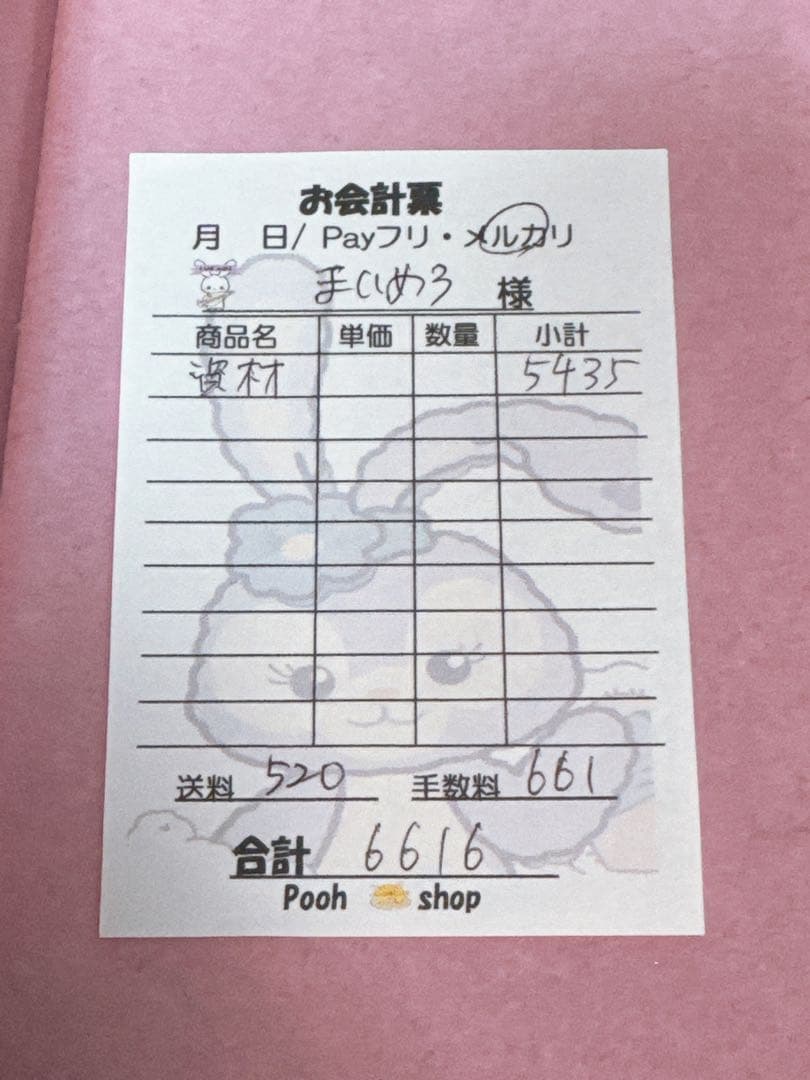 お会計票
月 日/ Payフリ・メルカリ
まいめろ 様
商品名 単価 数量 小計
資材 5435
送料 520 手数料 661
合計 6616
Pooh shop